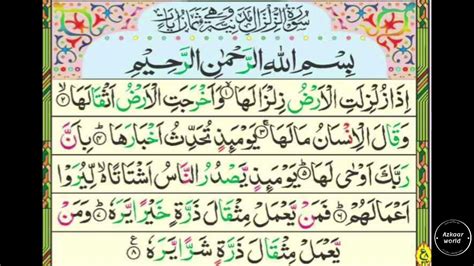 سُوْرَةُ الزِّلْزَالِ مَدَنِيَّةٌ وَّهِيَ ثَمَانُ اٰيَاتٍ
بِسْمِ اللهِ الرَّحْمٰنِ الرَّحِيْمِ
اِذَا زُلْزِلَتِ الْاَرْضُ زِلْزَالَهَا ۙ۱ وَاَخْرَجَتِ الْاَرْضُ اَثْقَالَهَا ۙ۲
وَقَالَ الْاِنْسَانُ مَالَهَا ۚ۳ يَوْمَىِٕذٍ تُحَدِّثُ اَخْبَارَهَا ۙ۴ بِاَنَّ
رَبَّكَ اَوْحٰى لَهَا ؕ۵ يَوْمَىِٕذٍ يَّصْدُرُ النَّاسُ اَشْتَاتًا ۙ۬ لِّيُرَوْا
اَعْمَالَهُمْ ؕ۶ فَمَنْ يَّعْمَلْ مِثْقَالَ ذَرَّةٍ خَيْرًا يَّرَهٗ ؕ۷ وَمَنْ
يَّعْمَلْ مِثْقَالَ ذَرَّةٍ شَرًّا يَّرَهٗ ۸
Azkaar
world